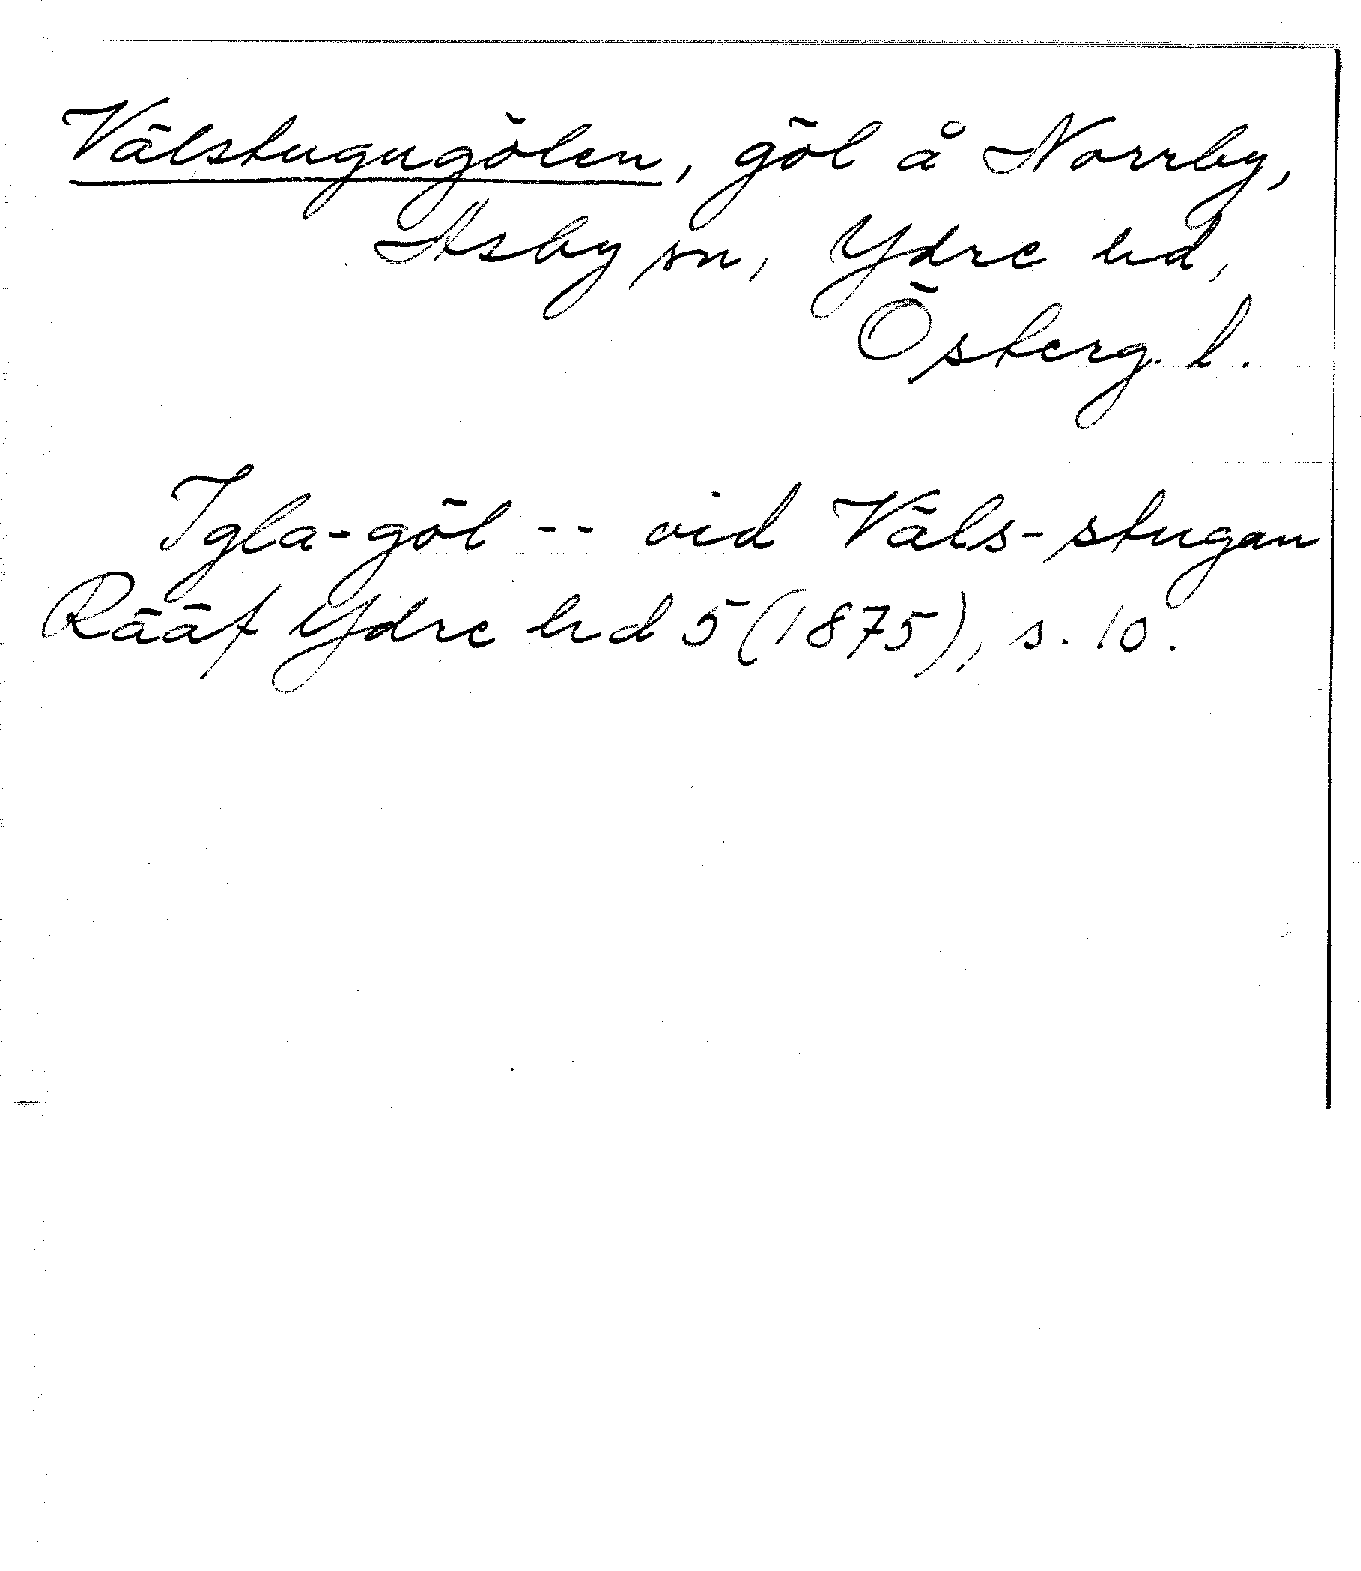 Välstugugölen, göl å Norrby,
Asby sn, Ydre hd,
Österg. l.
Igla-göl -- vid Väls-stugan
Rääf Ydre hd 5 (1875), s. 10.